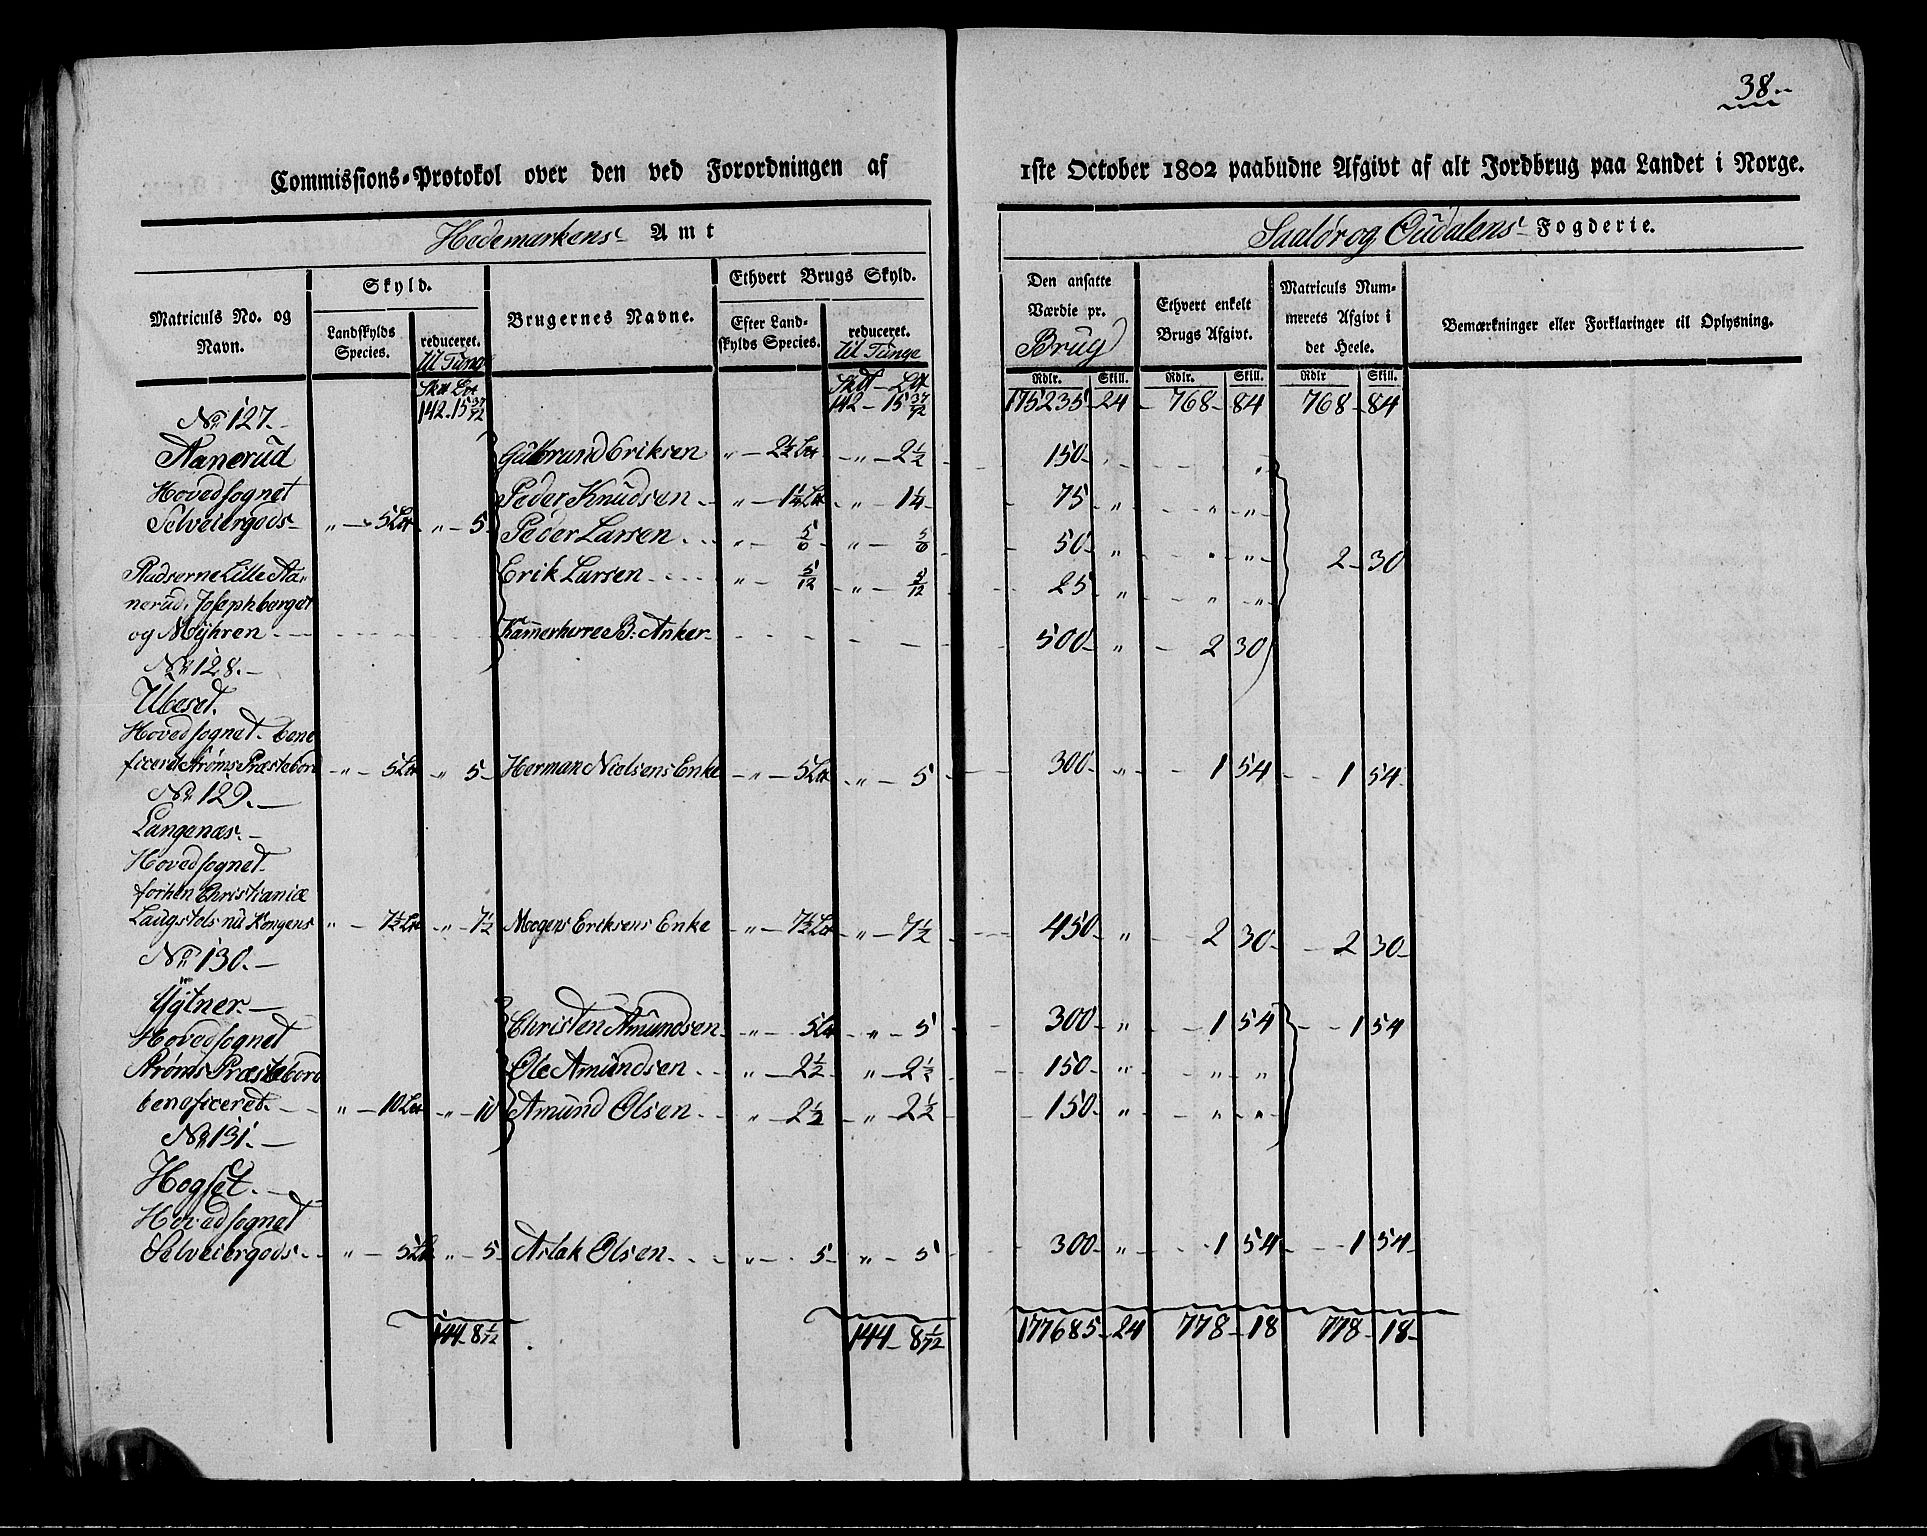 38.
Commissions-Protokol over den ved Forordningen af 1ste October 1802 paabudne Afgivt af alt Jordbrug paa Landet i Norge.
Hedemarkens Amt
Soløer og Oudalens Fogderie.
Matriculs No. og Navn.
Skyld.
Landskylds Species.
reduceret. til Tunge
Brugernes Navne.
Ethvert Brugs Skyld.
Efter Landskylds Species.
reduceret. til Tunge
Den ansatte Værdie pr. Brug
Ethvert enkelt Brugs Afgivt.
Matriculs Nummerets Afgivt i det Heele.
Bemærkninger eller Forklaringer til Oplysning.
Rdlr. Skill. Rdlr. Skill. Rdlr Skill.
142. 15 37/72 142 - 15 37/72 175235 - 24 - 768 - 84 768 - 84
No 127.
Aanerud Gulbrand Eriksen " - 2½ L℔ - " - 2½ 150 - " "
Hovedsognet Peder Knudsen - " - 1¼ L℔ " - 1¼ 75 " " "
Selveiergods - " - 5 L℔ " - 5 Peder Larsen " - 5/6 " - 5/6 50 " " " 2 - 30
Pladserne Lille Aa- Erik Larsen " - 5/12 " - 5/12 25 " " "
nerud, Josephberget
og Myhren Kammerherre B: Anker 500 " - 2 30
No 128.
Ulleset.
Hovedsognet bene-
ficeret Strøms Præstebord - " - 5 L℔ " 5 - Herman Nielsens Enke - " - 5 L℔ " - 5 300 - " - 1 54 - 1 54
No 129.
Langenæs.
Hovedsognet
forhen Christianiæ
Laugstols nu Kongens " - 7½ L℔ " 7½ Mogens Eriksens Enke - " - 7½ L℔ " - 7½ 450 - " - 2 30 - 2 30
No 130.
Ygtner
Hovedsognet Christen Amundsen - " - 5 L℔ " - 5 300 - " - 1 54 - 1 54
Strøms Præstebord Ole Amundsen " - 2½ " - 2½ 150 - " " "
beneficeret. " - 10 L℔ " 10 Amund Olsen " - 2½ - " - 2½ 150 - " " "
No 131.
Hogset.
Hovedsognet
Selveiergods - " - 5 L℔ " - 5 - Aslak Olsen " - 5 - " - 5 300 - " - 1 54 - 1 54
144 - 8 1/72 144 - 8 1/72 177685 - 24 778 - 18 778 - 18